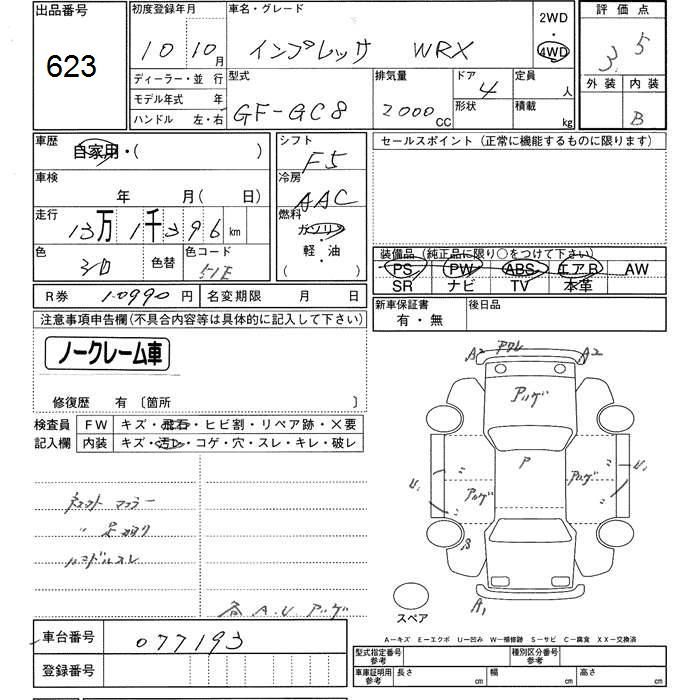 出品番号
623
初度登録年月
10年10月
車名・グレード
インプレッサ WRX
2WD
・
4WD
評価点
3.5
外装 内装
B
ディーラー・並行
モデル年式 年
ハンドル 左・右
型式
GF-GC8
排気量
2000cc
ドア
4
形状
定員
人
積載
kg
車歴
自家用・( )
車検
年 月(日)
走行
13万1千396km
色
色替
色コード
51E
シフト
F5
冷房
AAC
燃料
ガソリン
・
軽・油
( )
セールスポイント(正常に機能するものに限ります)
装備品(純正品に限り○をつけて下さい)
PS PW ABS エアB AW
SR ナビ TV 本革
R券 10990円
名変期限 月 日
新車保証書
有・無
後日品
注意事項申告欄(不具合内容等は具体的に記入して下さい)
ノークレーム車
修復歴 有〔箇所 〕
検査員
記入欄
FW キズ・飛石・ヒビ割・リペア跡・X要
内装 キズ・汚レ・コゲ・穴・スレ・キレ・破レ
マフラー
〃 足回り
ハンドルスレ
各 A.U アリゲ
A2 A2
アリゲ
P
U1 アリゲ アリゲ U1
S
A1
スペア
A―キズ E―エクボ U―凹み W―補修跡 S―サビ C―腐食 XX―交換済
車台番号
077193
登録番号
型式指定番号
参考
種別区分番号
参考
車庫証明用
参考
長さ cm
幅 cm
高さ cm